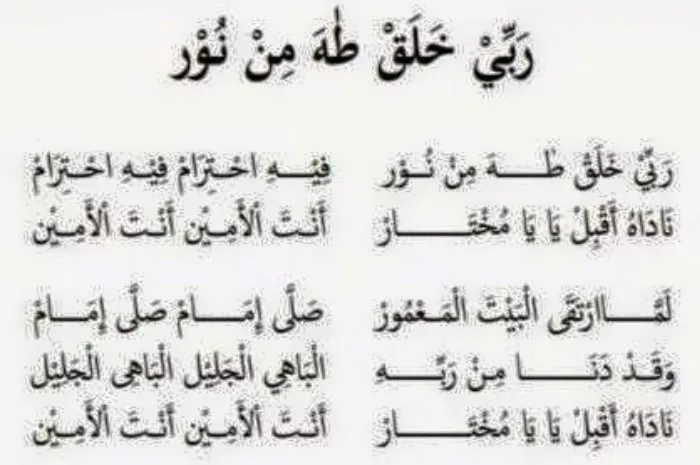 رَبِّيْ خَلَقْ طٰهَ مِنْ نُوْر
رَبِّيْ خَلَقْ طٰـــهَ مِنْ نُـوْر فِيْـــهِ احْـتِرَامْ فِيْـهِ احْـتِرَامْ
نَادَاهُ أَقْبِلْ يَا يَا مُخْتَـــــارْ أَنْـتَ اْلأَمِـيْن أَنْـتَ اْلأَمِـيْن
لَمَّـــاارْتَقَى الْبَيْتَ الْمَـعْمُورْ صَلَّى إِمَـــامْ صَلَّى إِمَـــامْ
وَقَـدْ دَنَـــا مِـنْ رَبِّـــهِ الْبَاهِي الْجَلِيْل الْبَاهِى الْجَلِيْل
نَادَاهُ أَقْبِلْ يَا يَا مُخْتَـــــارْ أَنْـتَ اْلأَمِـيْن أَنْـتَ اْلأَمِـيْن